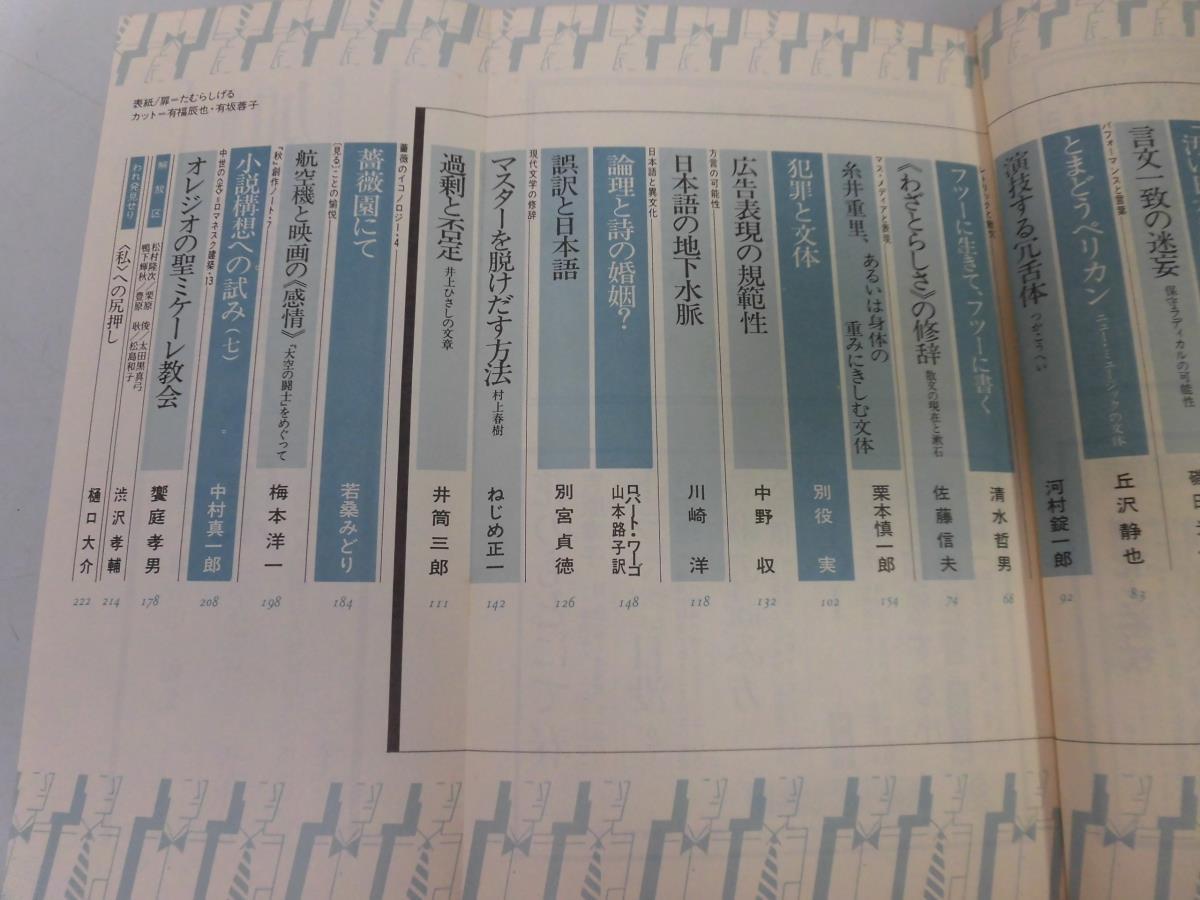 言文一致の迷妄
保守ラディカルの可能性
パフォーマンスと言葉
とまどうペリカン
ニュー・ミュージックの文体
丘沢静也
83
演技する冗舌体
つかこうへい
河村錠一郎
92
フツーに生きて、フツーに書く
清水哲男
68
《わざとらしさ》の修辞
散文の現在と漱石
佐藤信夫
74
マス・メディアと表現
糸井重里、あるいは身体の
重みにきしむ文体
栗本慎一郎
154
犯罪と文体
別役実
102
広告表現の規範性
中野収
132
方言の可能性
日本語の地下水脈
川崎洋
118
日本語と異文化
論理と詩の婚姻?
ロバート・ワーゴ
山本路子訳
148
誤訳と日本語
別宮貞徳
126
現代文学の修辞
マスターを脱けだす方法
村上春樹
ねじめ正一
142
過剰と否定
井上ひさしの文章
井筒三郎
111
薔薇のイコノロジー・4
薔薇園にて
若桑みどり
184
[見る]ことの愉悦
航空機と映画の《感情》
『大空の闘士』をめぐって
梅本洋一
198
『秋』創作ノート・7
小説構想への試み(七)
中村真一郎
208
中世の〈光〉=ロマネスク建築・13
オレジオの聖ミケーレ教会
饗庭孝男
178
解放区
松村隆次/栗原俊/太田黒真弓
鴨下輝秋/豊原耿/松島和子
渋沢孝輔
214
われ発見せり
〈私〉への尻押し
樋口大介
222
表紙/扉=たむらしげる
カット=有福辰也・有坂蓉子